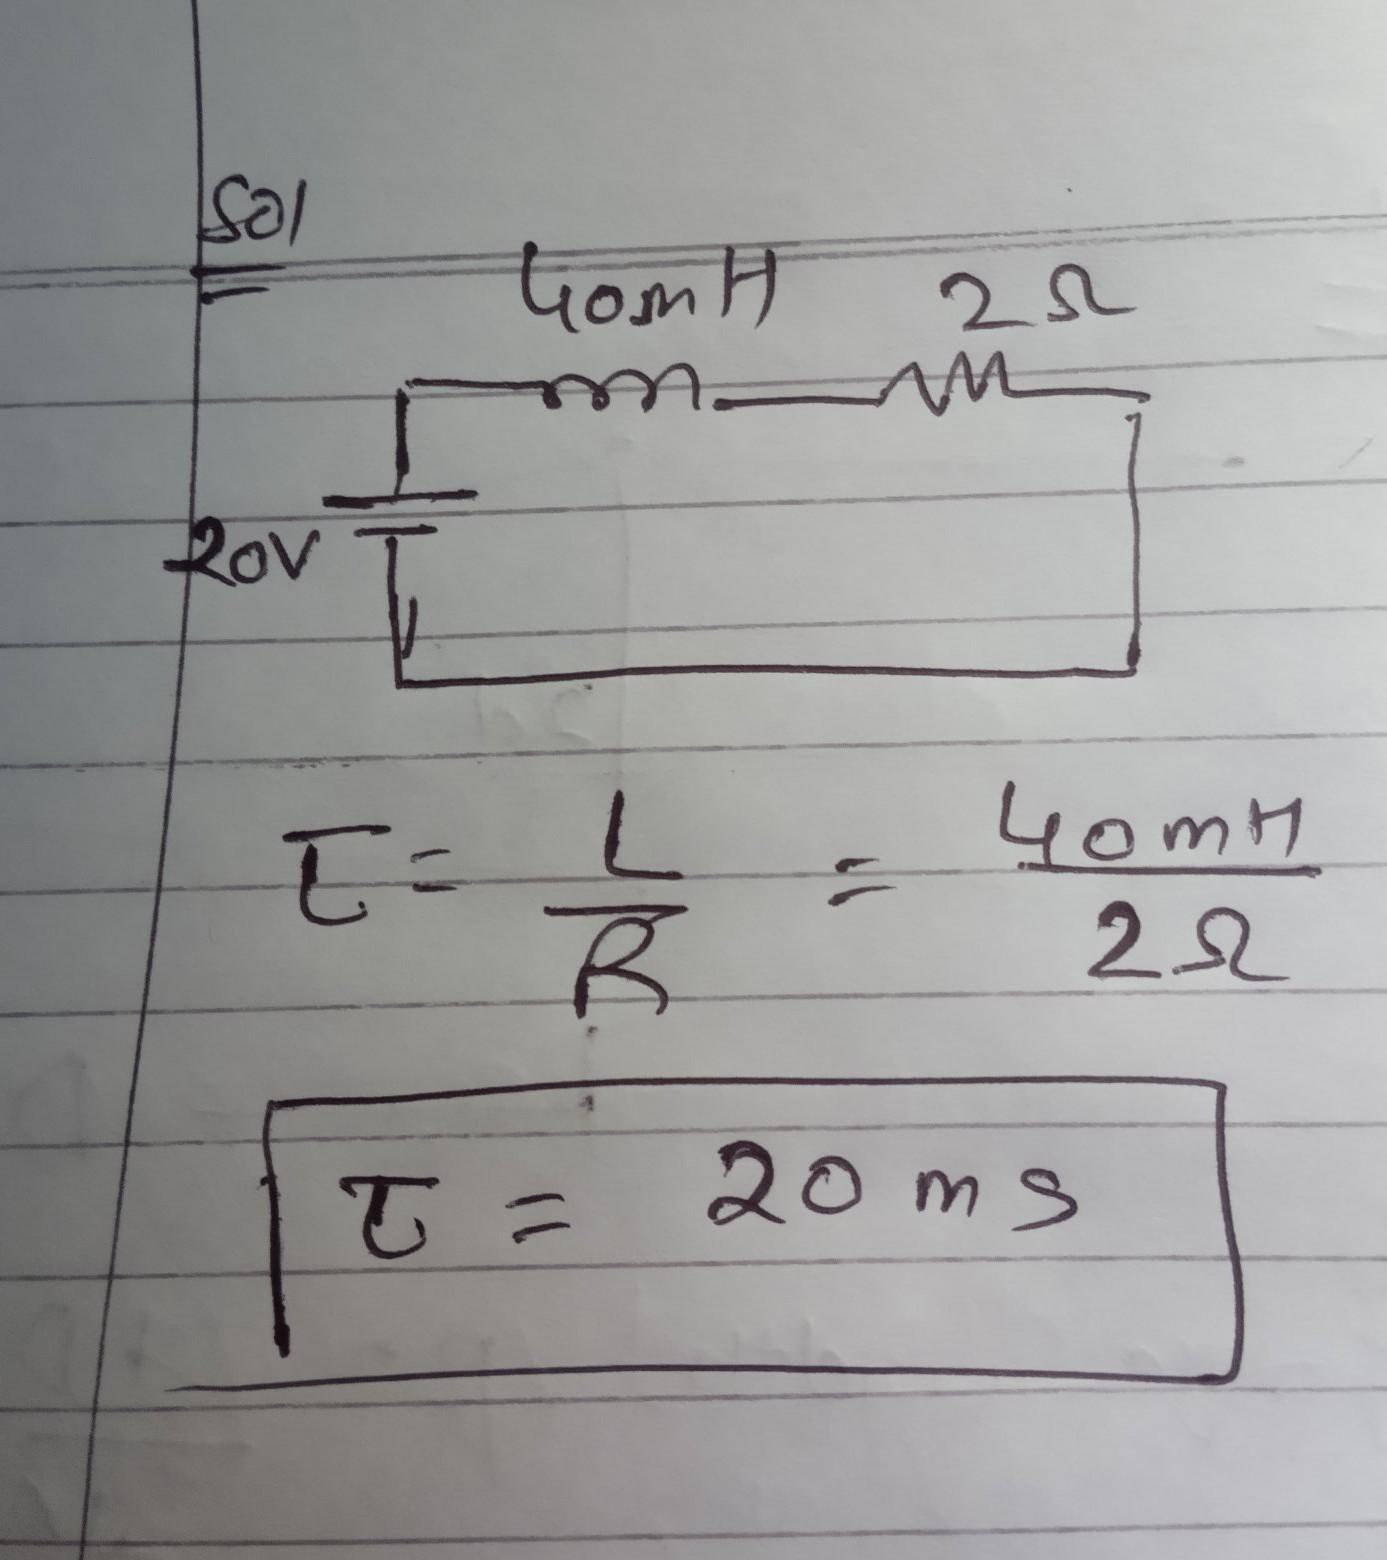 Sol
40mH 2Ω
20V
τ = L/R = 40mH/2Ω
τ = 20 ms